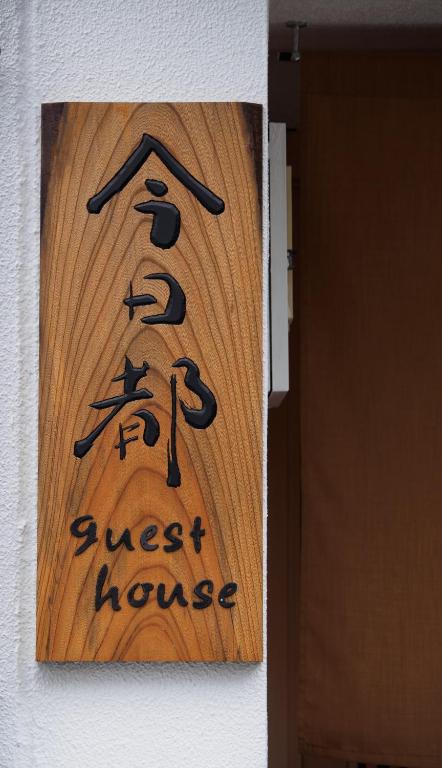 今日都
guest
house